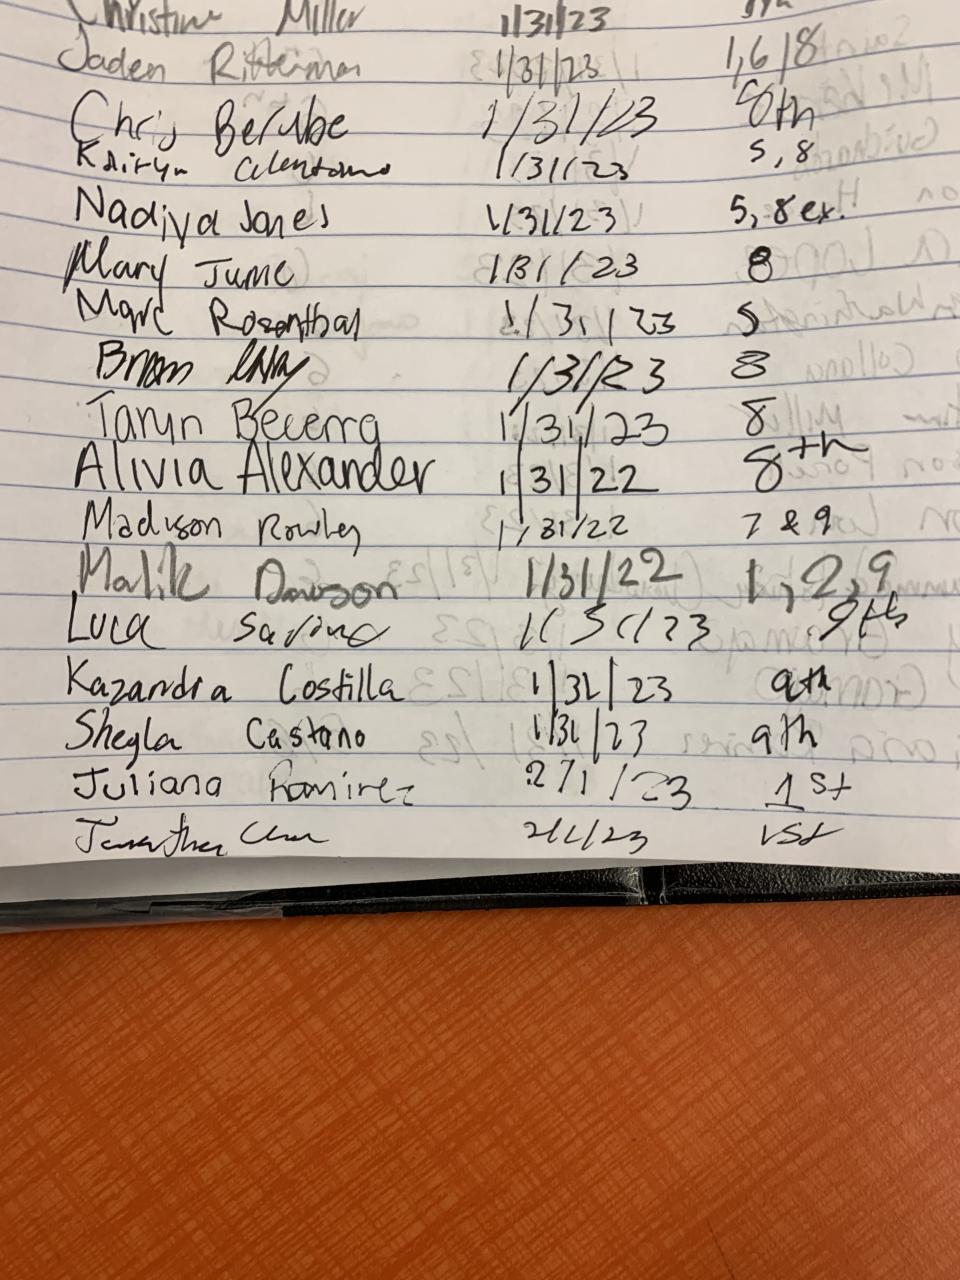 Christine Miller 1/31/23
Jaden Ritterman 1/31/23 1,6/8
Chris Berube 1/31/23 8th
1/31/23 5,8
Nadiya Jones 1/31/23 5,8 ex.
Mary June 1/31/23 8
Marc Rosenthal 1/31/23 5
Brian 1/31/23 8
Taryn Becerra 1/31/23 8
Alivia Alexander 1/31/22 8th
Madison Rowley 1/31/22 7 & 9
Malik Dawson 1/31/22 1,2,9
Luca Savino 1/31/23 9th
Kazandra Costilla 1/31/23 9th
Sheyla Castano 1/31/23 9th
Juliana Ramirez 2/1/23 1st
2/1/23 1st